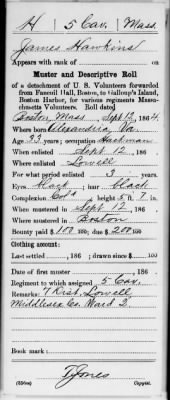 H | 5 Cav. | Mass
James Hawkins
Appears with rank of
Muster and Descriptive Roll
of a detachment of U. S. Volunteers forwarded
from Faneuil Hall, Boston, to Galloup's Island,
Boston Harbor, for various regiments Massa-
chusetts Volunteers. Roll dated
Boston, Mass, Sept 12, 1864.
Where born Alexandria Va.
Age 33 years; occupation Hackman
When enlisted Sept 12, 186
Where enlisted Lowell
For what period enlisted 3 years.
Eyes black; hair black
Complexion Cold; height 5 ft. 7 in.
When mustered in Sept 12, 186
Where mustered in Boston
Bounty paid $100 100; due $200 100
Clothing account:
Last settled, 186 ; drawn since $ 100
Date of first muster, 186 .
Regiment to which assigned 5 Cav.
Remarks: 7 Dist. Lowell
Middlesex Co. Ward 2
Book mark:
T. Jones
Copyist.